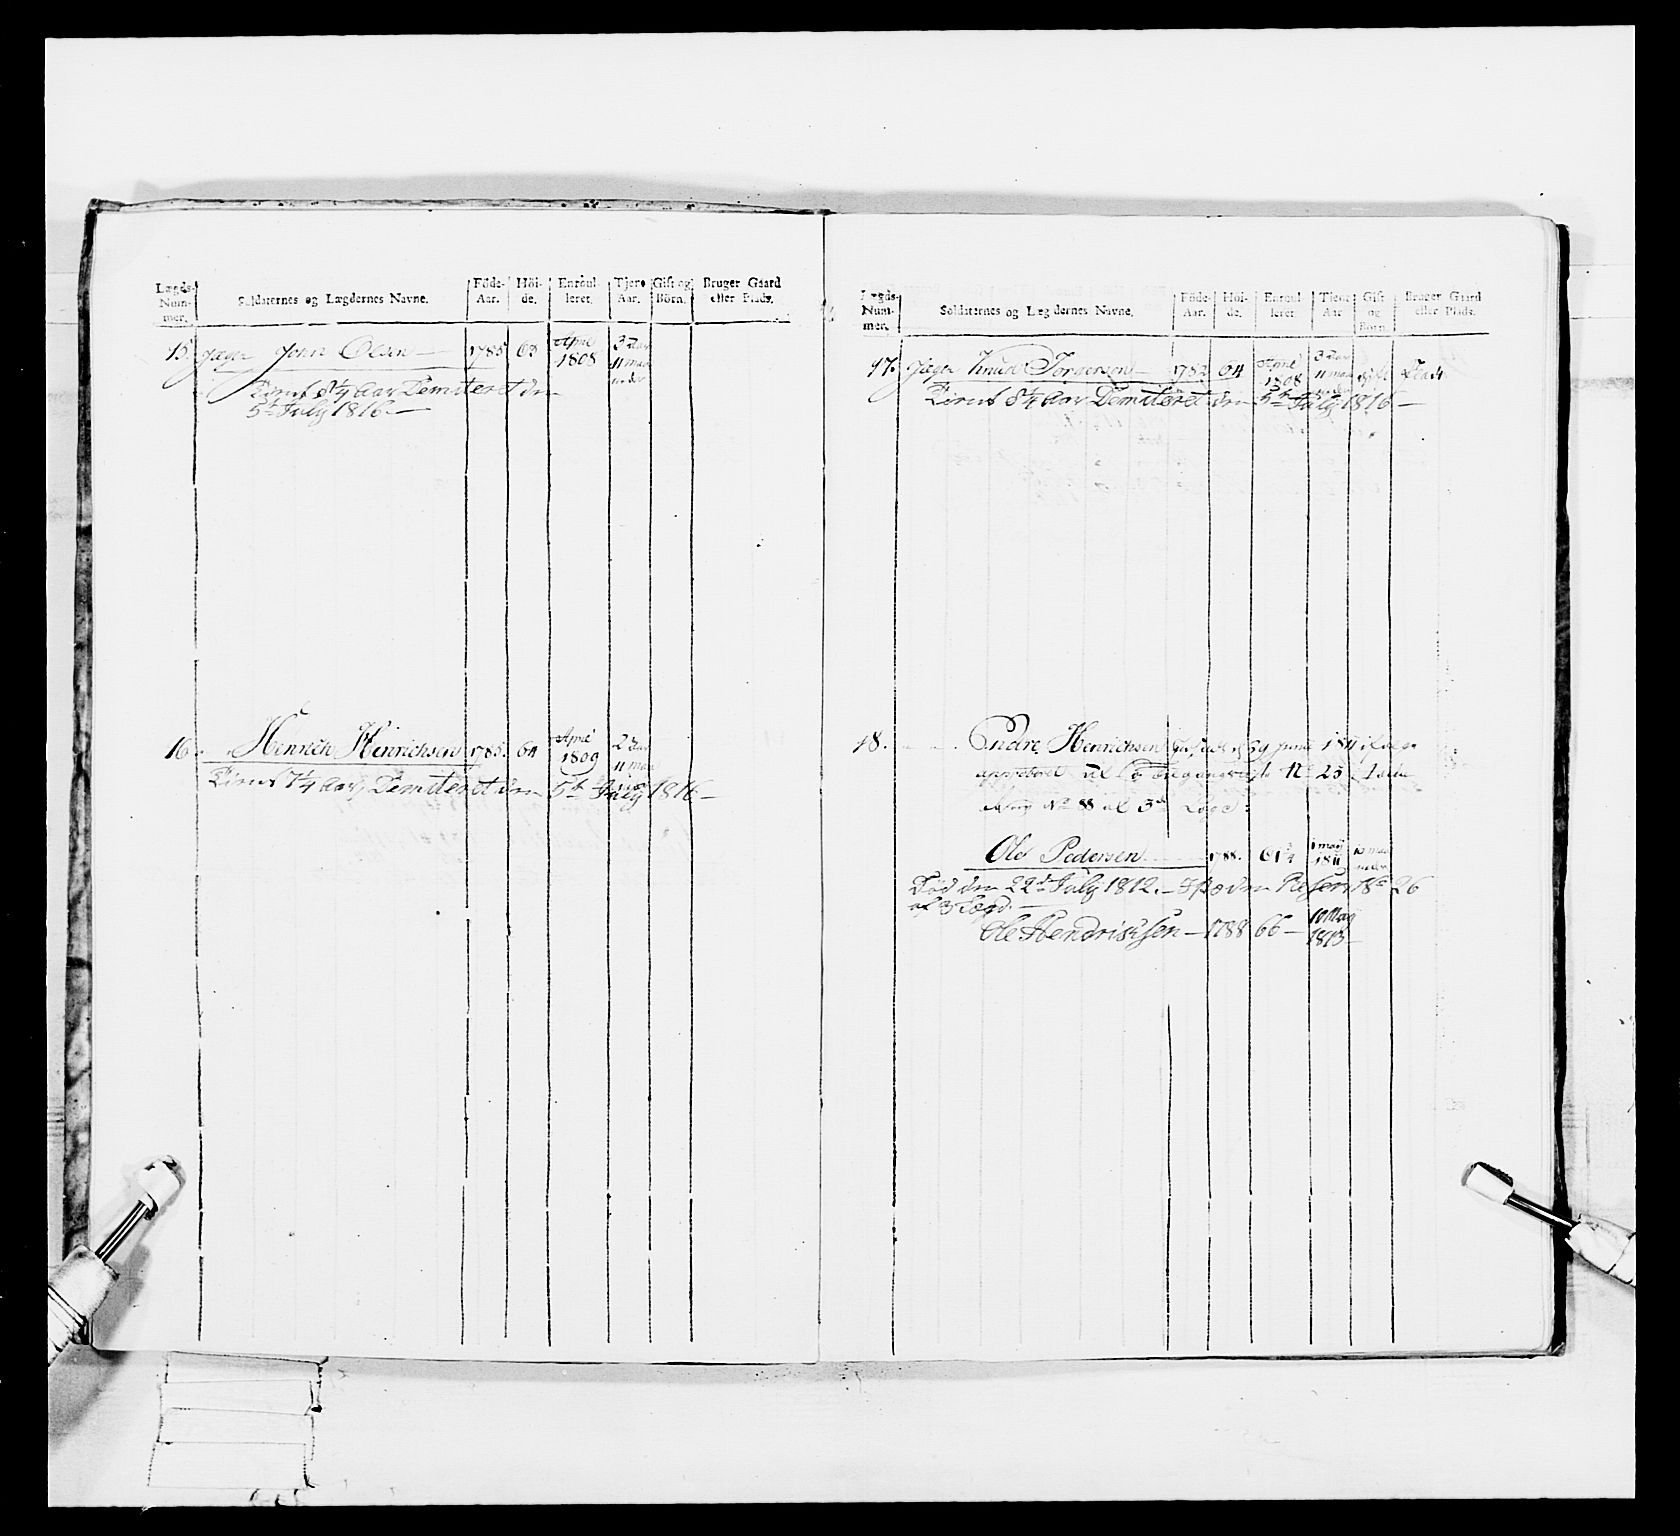 Lægds- Num- mer. Soldaternes og Lægdernes Navne. Föde- Aar. Höi- de. Enroul- leret. Tjene Aar. Gift og Börn. Bruger Gaard eller Plads.
15. Jæger John Olsen — 1785 63 April 1808 3 Aar 11 maa neder
Tient 8¼ Aar Demiteret den
5te July 1816. —
16. Henrich Hinrichsen 1785. 64 April 1809 2 Aar 11 maa
Tient 7¼ Aar, Demiteret den 5te July 1816 —
Lægds- Num- mer. Soldaternes og Lægdernes Navne. Föde- Aar. Höi- de. Enroul- leret Tiene Aar Gift og Börn. Bruger Gaard eller Plads.
17. Jæger Knud Torgersen — 1782 64 April 1808 3 Aar 11 maa neder gift Plads
Tient 8¼ Aar Demiteret den 5te July 1816 —
18. Endre Henrichsen 29 Juni 1811 ifølge
approberet No 25
No 88 3de Lægd.
Ole Pedersen 1788. 61¼ 1 may 1811 10 maa neder
Död den 22de July 1812. — den 26
af 3 Lægd. —
Ole Hendrichsen — 1788 66 — 10 May 1813 —